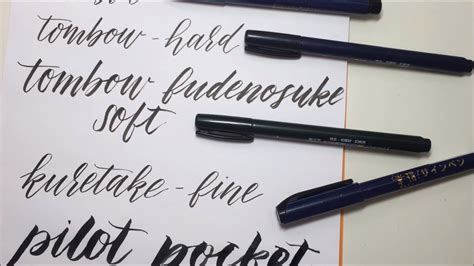 tombow - hard
tombow fudenosuke
soft
kuretake - fine
pilot pocket